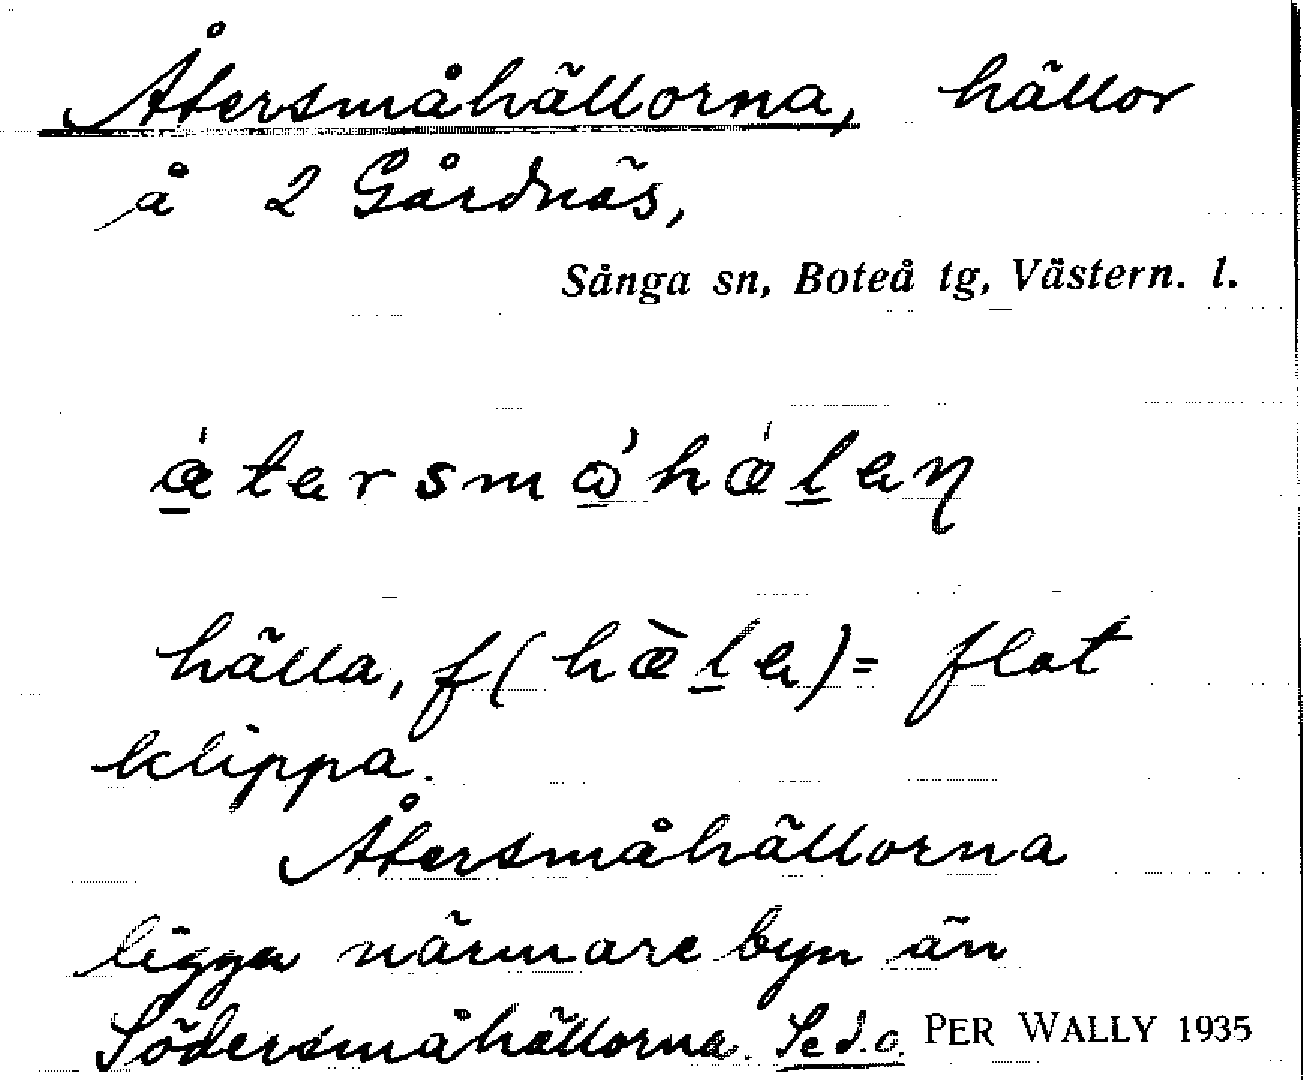 Återsmåhällorna, hällor
å 2 Gårdnäs,
Sånga sn, Boteå tg, Västern. l.
hälla, f = flat
klippa.
Återsmåhällorna
ligga närmare byn än
Södersmåhällorna. Se d.o. PER WALLY 1935